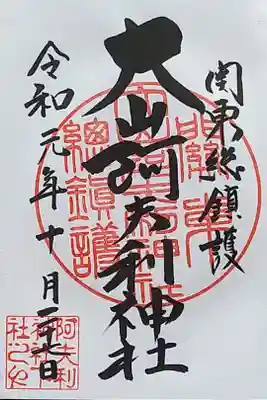 関東総鎮護
大山阿夫利神社
令和元年十月二十七日
關東
總鎮護
阿夫利
神社之印